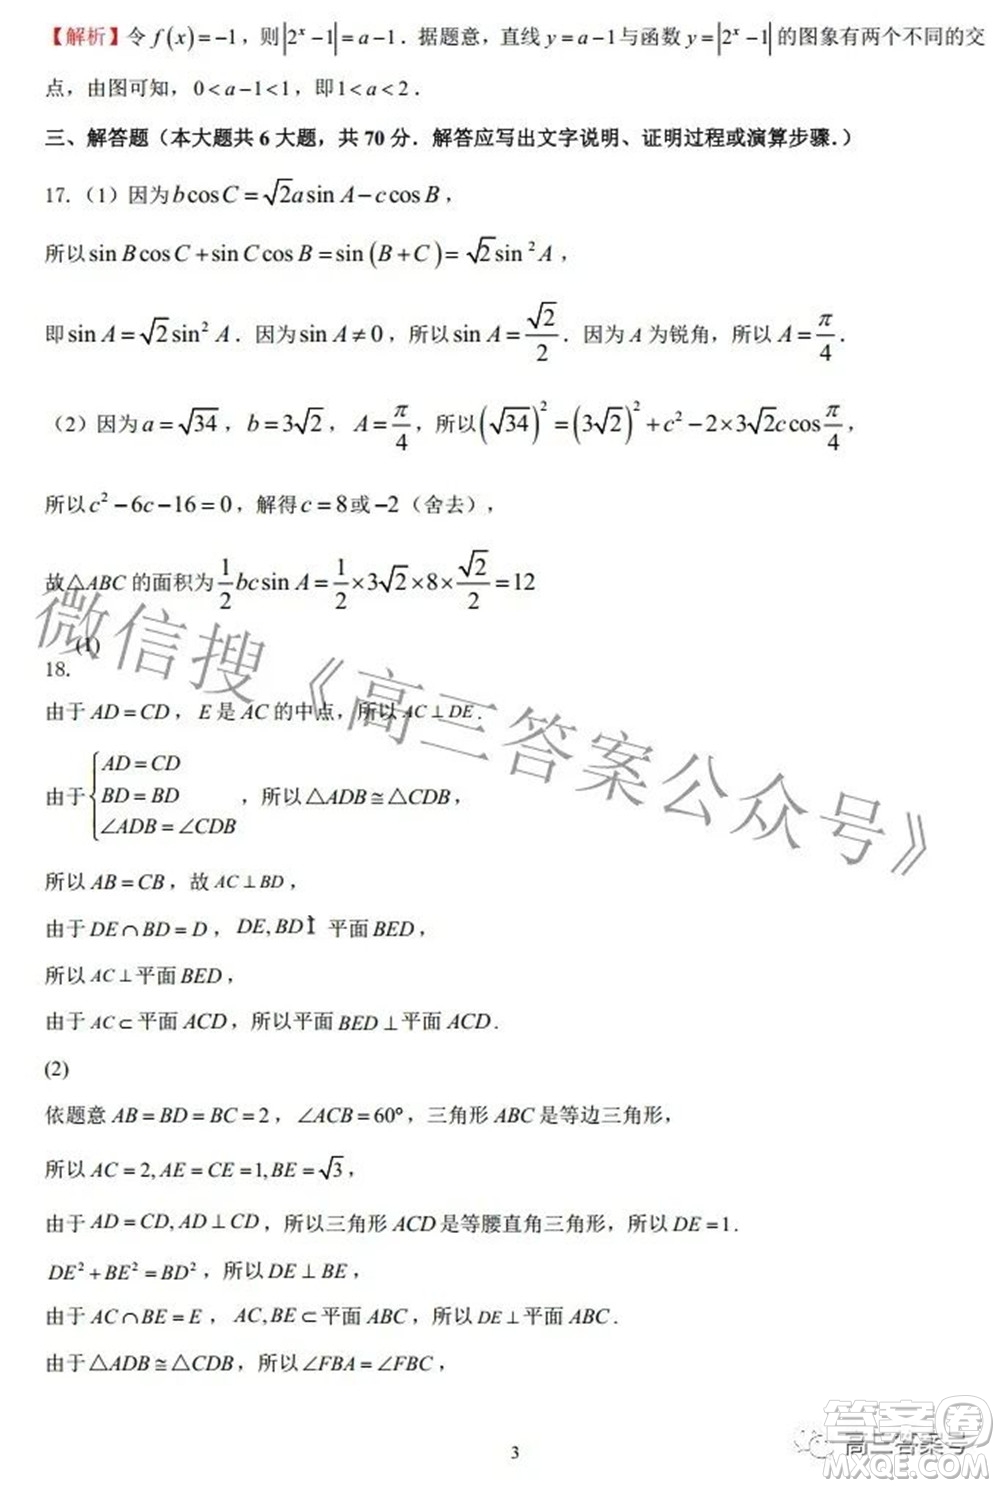 【解析】令 f(x)=-1，则|2^x-1|=a-1．据题意，直线 y=a-1 与函数 y=|2^x-1| 的图象有两个不同的交
点，由图可知，0<a-1<1，即 1<a<2．
三、解答题（本大题共 6 大题，共 70 分．解答应写出文字说明、证明过程或演算步骤.）
17.（1）因为 bcosC=√2asinA-ccosB，
所以 sinBcosC+sinCcosB=sin(B+C)=√2sin²A，
即 sinA=√2sin²A．因为 sinA≠0，所以 sinA=√2/2．因为 A 为锐角，所以 A=π/4．
（2）因为 a=√34，b=3√2，A=π/4，所以(√34)²=(3√2)²+c²-2×3√2ccosπ/4，
所以 c²-6c-16=0，解得 c=8 或 -2（舍去），
故△ABC 的面积为 1/2bcsinA=1/2×3√2×8×√2/2=12
(1)
18.
由于 AD=CD，E 是 AC 的中点，所以 AC⊥DE．
由于{AD=CD
BD=BD
∠ADB=∠CDB，所以△ADB≅△CDB，
所以 AB=CB，故 AC⊥BD，
由于 DE∩BD=D，DE,BD 平面 BED，
所以 AC⊥平面 BED，
由于 AC⊂平面 ACD，所以平面 BED⊥平面 ACD．
(2)
依题意 AB=BD=BC=2，∠ACB=60°，三角形 ABC 是等边三角形，
所以 AC=2,AE=CE=1,BE=√3，
由于 AD=CD,AD⊥CD，所以三角形 ACD 是等腰直角三角形，所以 DE=1．
DE²+BE²=BD²，所以 DE⊥BE，
由于 AC∩BE=E，AC,BE⊂平面 ABC，所以 DE⊥平面 ABC．
由于△ADB≅△CDB，所以∠FBA=∠FBC，
微信搜《高三答案公众号》
3
高三答案号
答案圈
MXQE.COM